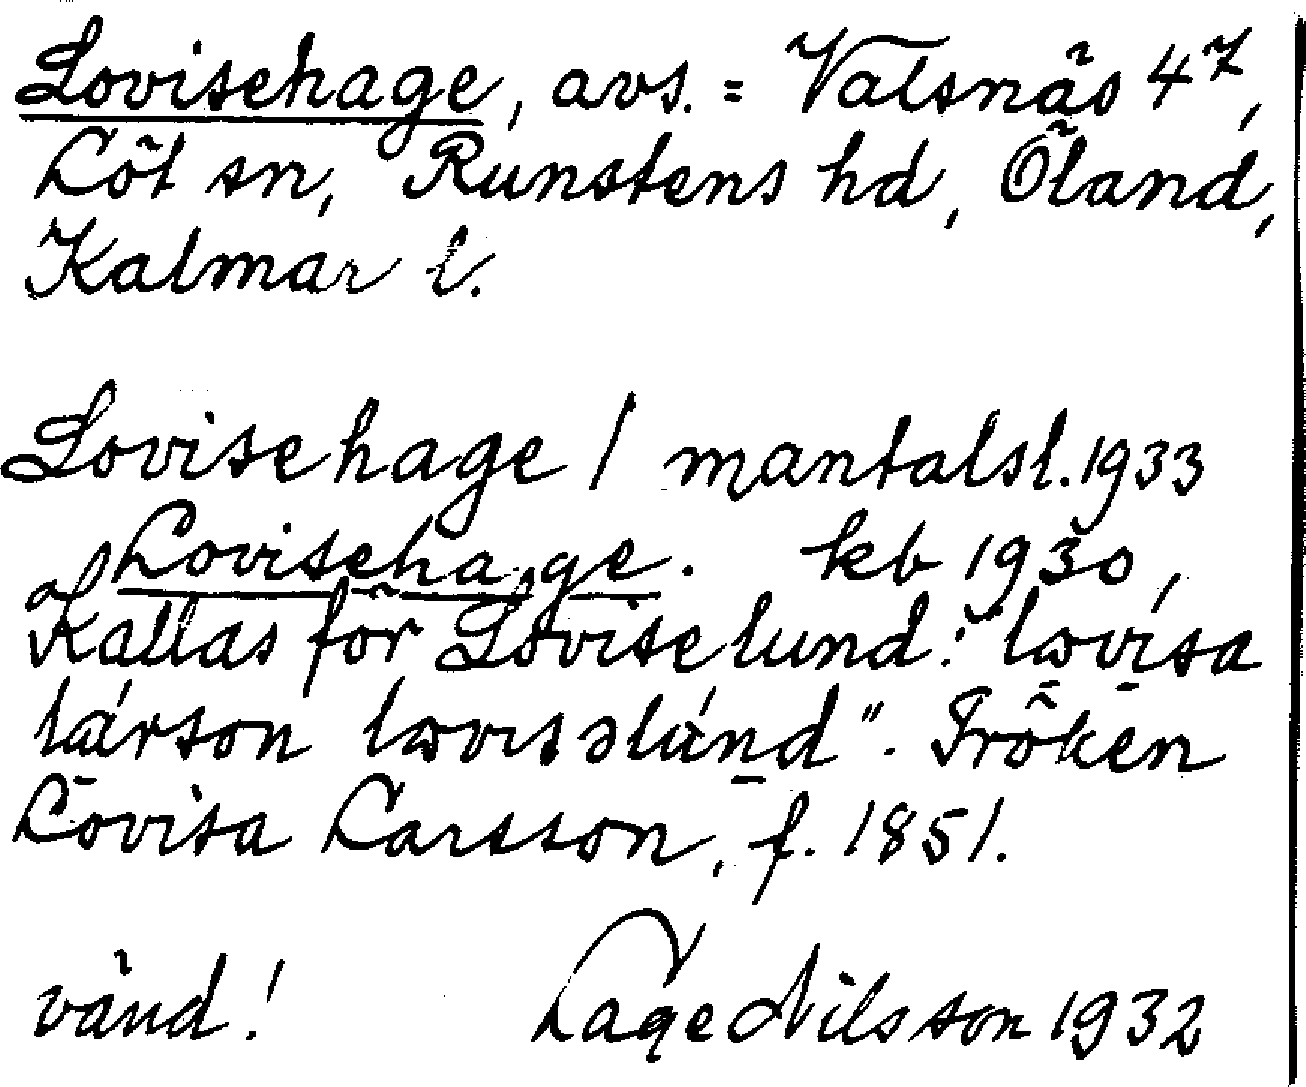 Lovisehage, avs. = Valsnäs 4⁷,
Löt sn, Runstens hd, Öland,
Kalmar l.
Lovisehage / mantalsl. 1933
Lovisehage. kb 1930,
Kallas för Loviselund: "lovisa
lárson lovisəlúnd". Fröken
Lovisa Larsson, f. 1851.
vänd! Lage Nilsson 1932